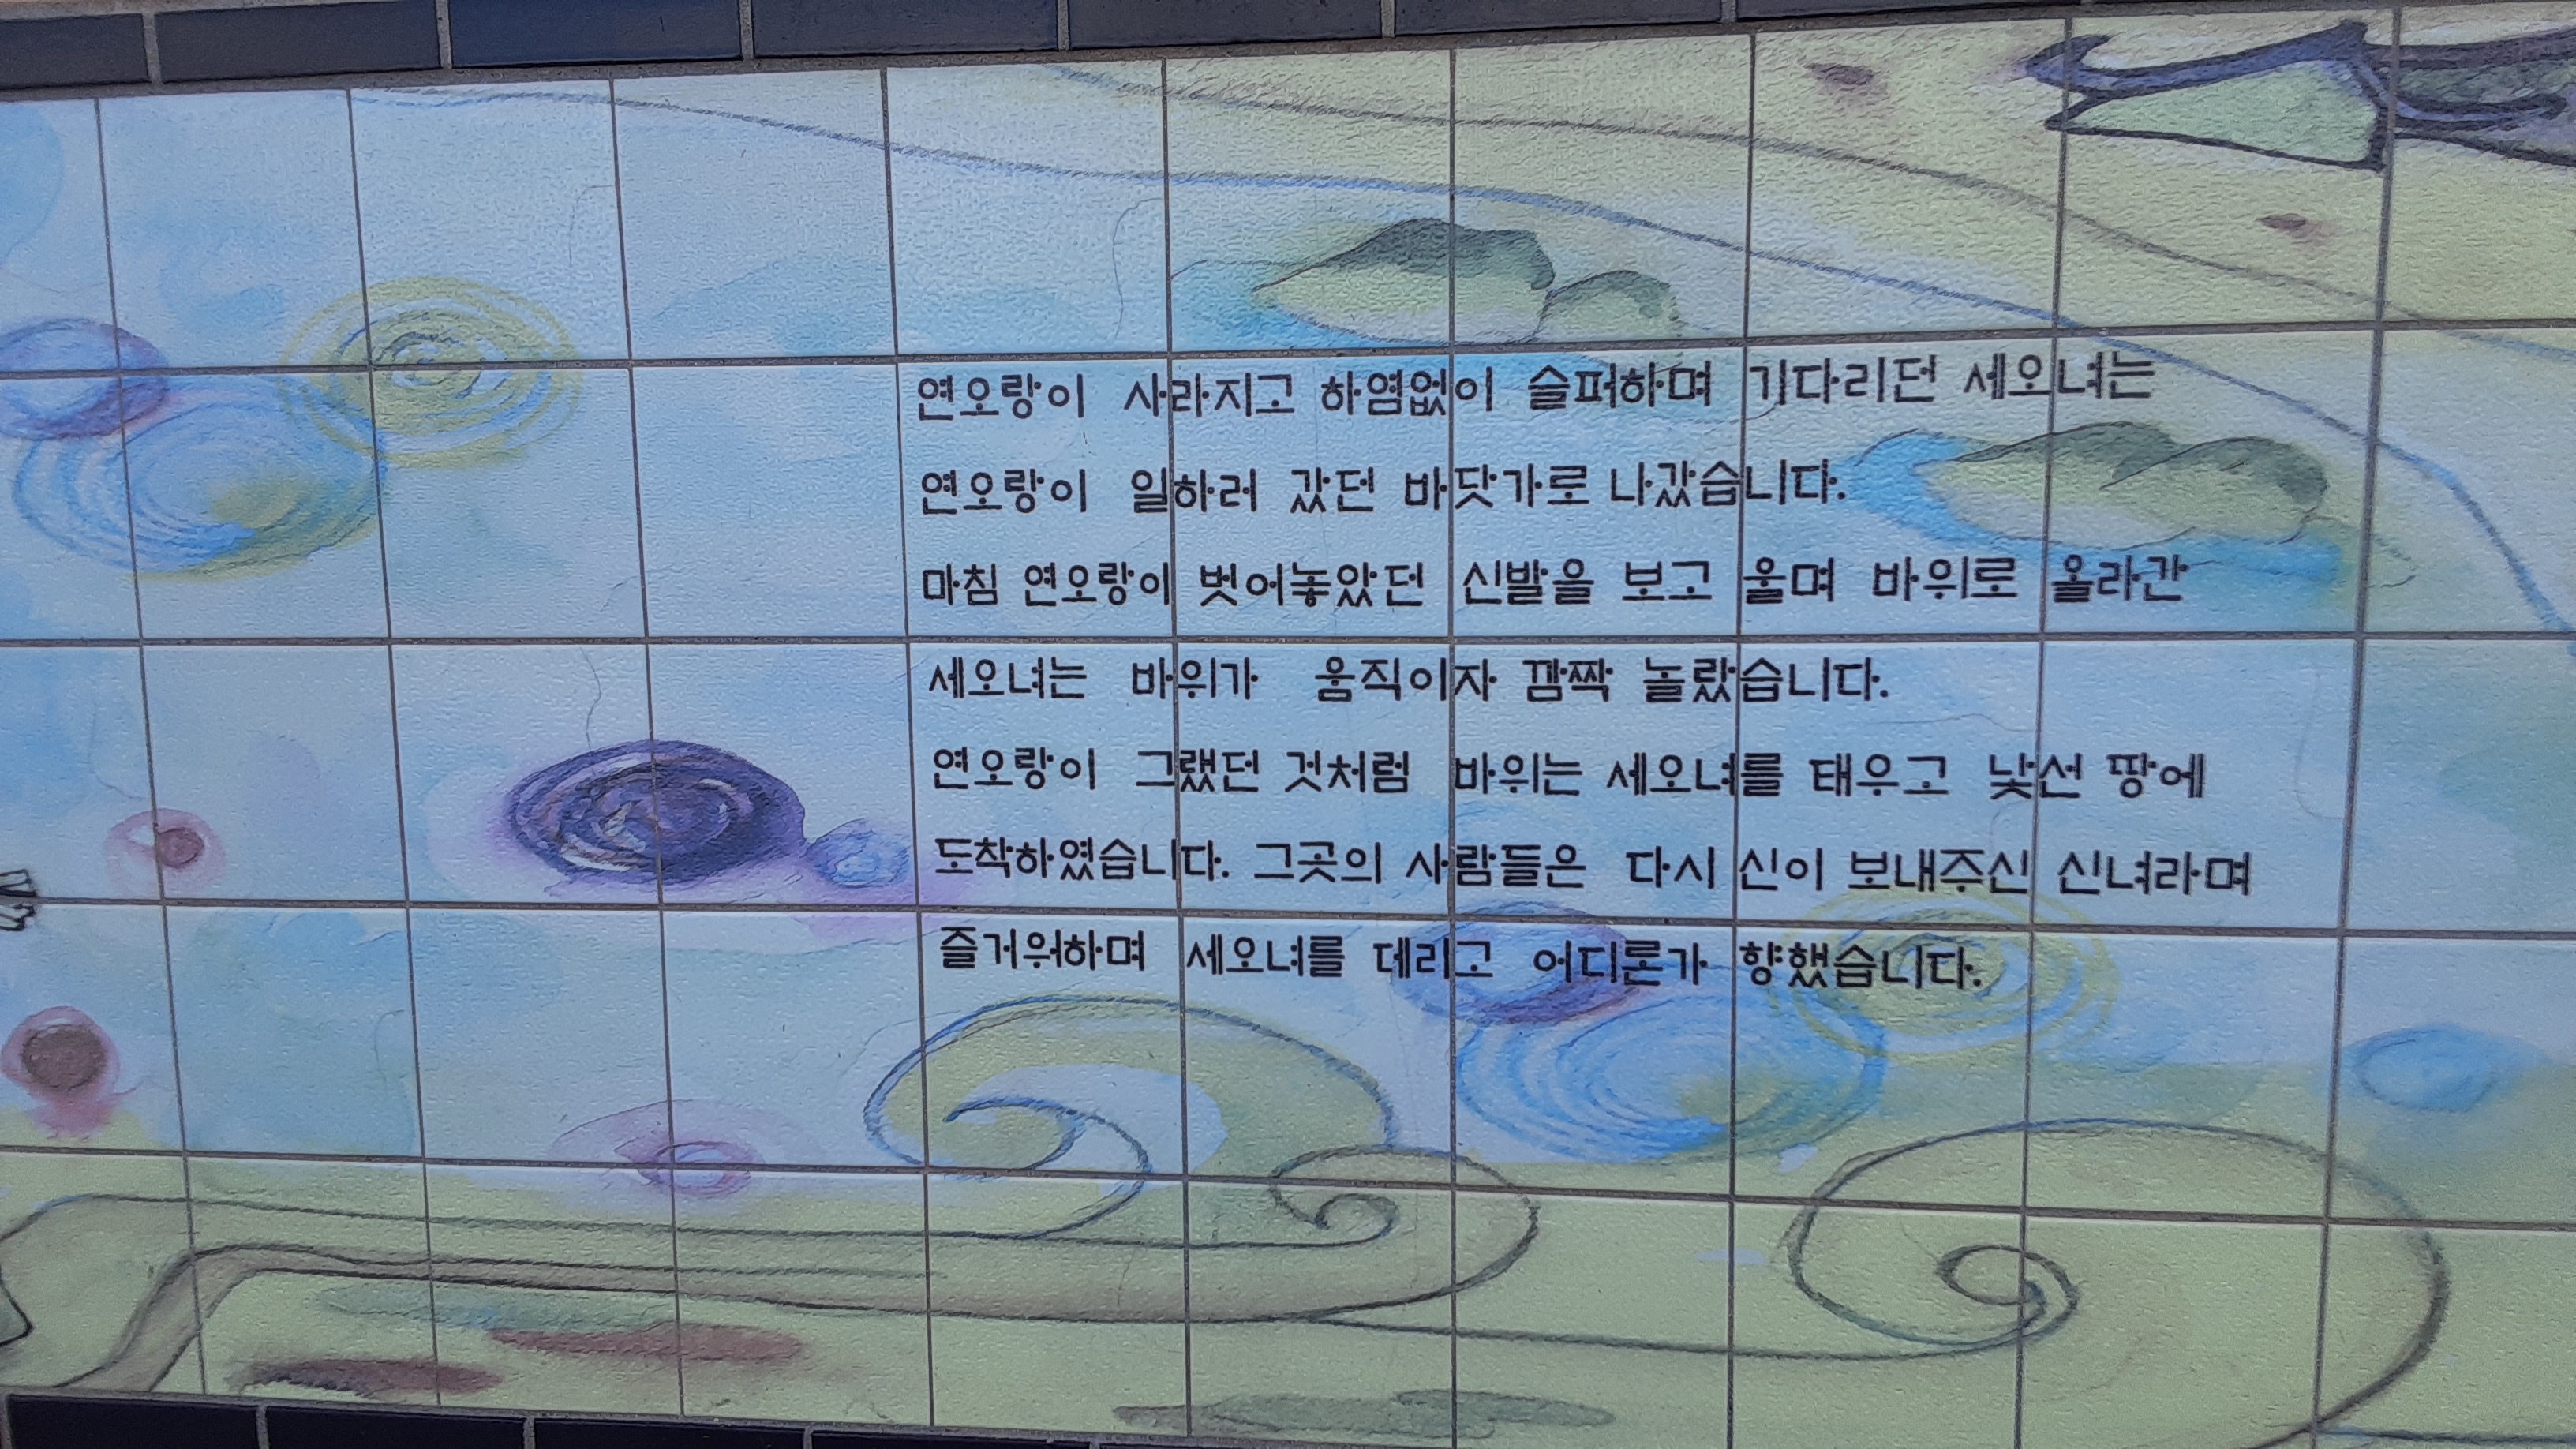 연오랑이 사라지고 하염없이 슬퍼하며 기다리던 세오녀는
연오랑이 일하러 갔던 바닷가로 나갔습니다.
마침 연오랑이 벗어놓았던 신발을 보고 울며 바위로 올라간
세오녀는 바위가 움직이자 깜짝 놀랐습니다.
연오랑이 그랬던 것처럼 바위는 세오녀를 태우고 낯선 땅에
도착하였습니다. 그곳의 사람들은 다시 신이 보내주신 신녀라며
즐거워하며 세오녀를 데리고 어디론가 향했습니다.